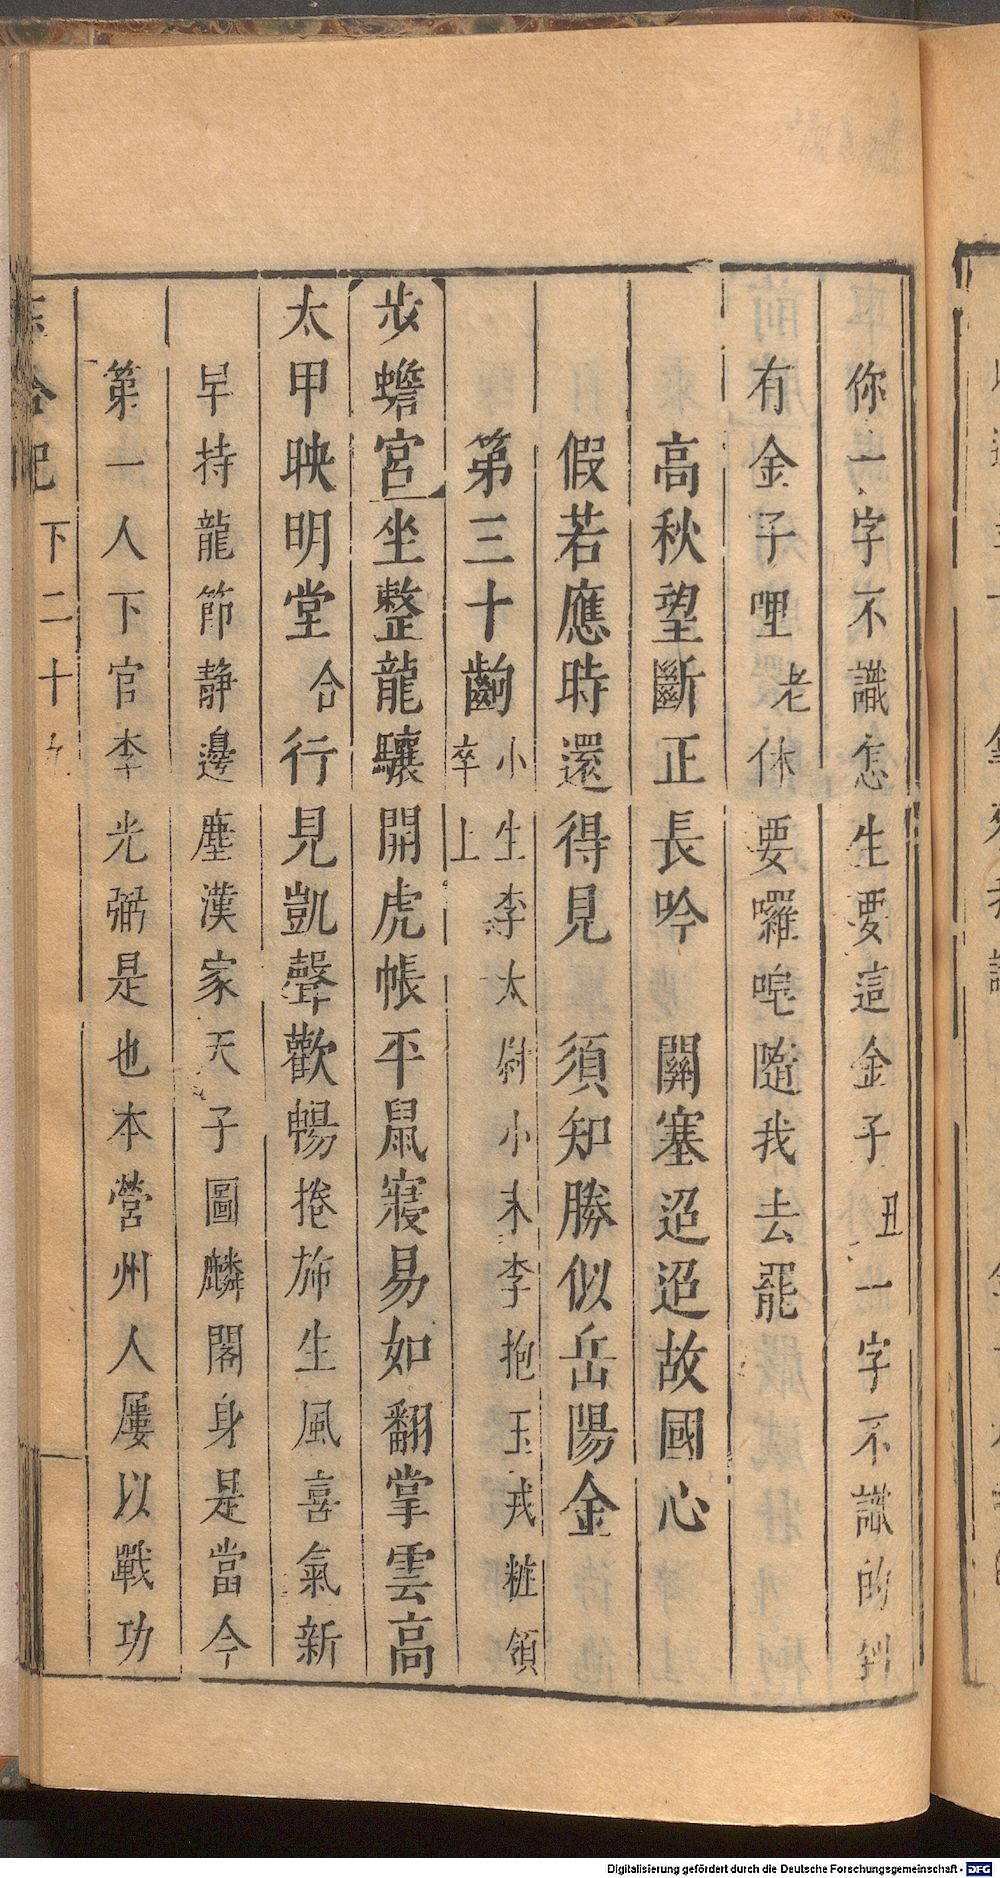 你一字不識怎生要這金子丑一字不識的到
有金子哩老休要囉唣隨我去罷
高秋望斷正長吟　關塞迢迢故國心
假若應時還得見　須知勝似岳陽金
第三十齣小生李太尉小末李抱玉戎粧領卒上
步蟾宮坐整龍驤開虎帳平鼠寇易如翻掌雲高
太甲映明堂合行見凱聲歡暢捲旆生風喜氣新
早持龍節静邊塵漢家天子圖麟閣身是當今
第一人下官李光弼是也本營州人屢以戰功
合記
下二十
Digitalisierung gefördert durch die Deutsche Forschungsgemeinschaft - DFG